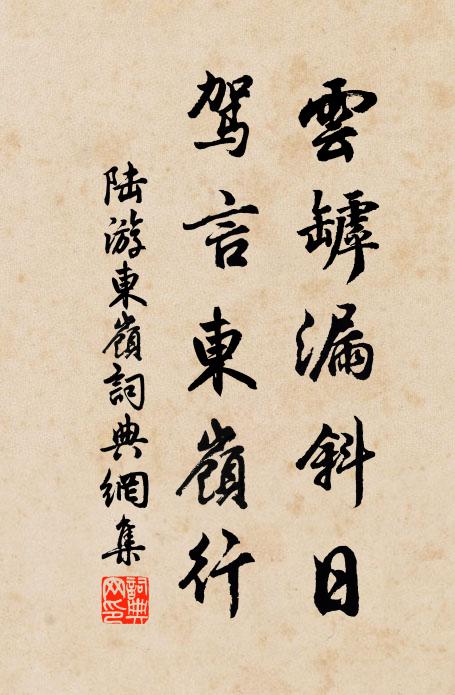 雲罅漏斜日
驾言東嶺行
陆游東嶺詞典網集
詞典網印